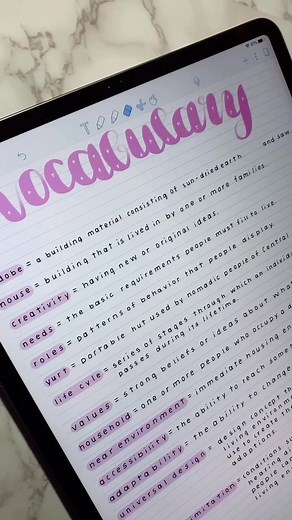 vocabulary
dobe = a building material consisting of sun-dried earth and saw
house = building that is lived in by one or more families.
creativity = having new or original ideas.
needs = the basic requirements people must fill to live.
roles = patterns of behavior that people display.
yurt = portable hut used by nomadic people of Central
life cyle = series of stages through which an individu
passes during its lifetime.
values = strong beliefs or ideas about what
household = one or more people who occupy a d
near environment = immediate housing en
accessibility = the ability to reach some
adaptability = the ability to change
universal design = design concept th
living environme
use to
adaptions.
imitation = conditions su
hearing di
people can
living en